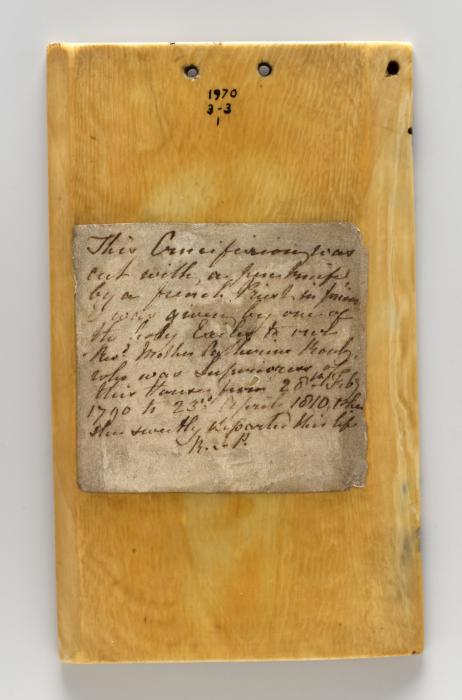 1970
3-3
1
This Crucifixion was
cut with a penknife
by a french Priest in prison
& was given by one of
the holy Exiles to our
Revd. Mother Catherine
who was Superioress of
this House from 28th Feby
1790 to 23rd April 1810, when
she sweetly departed this life
R.I.P.